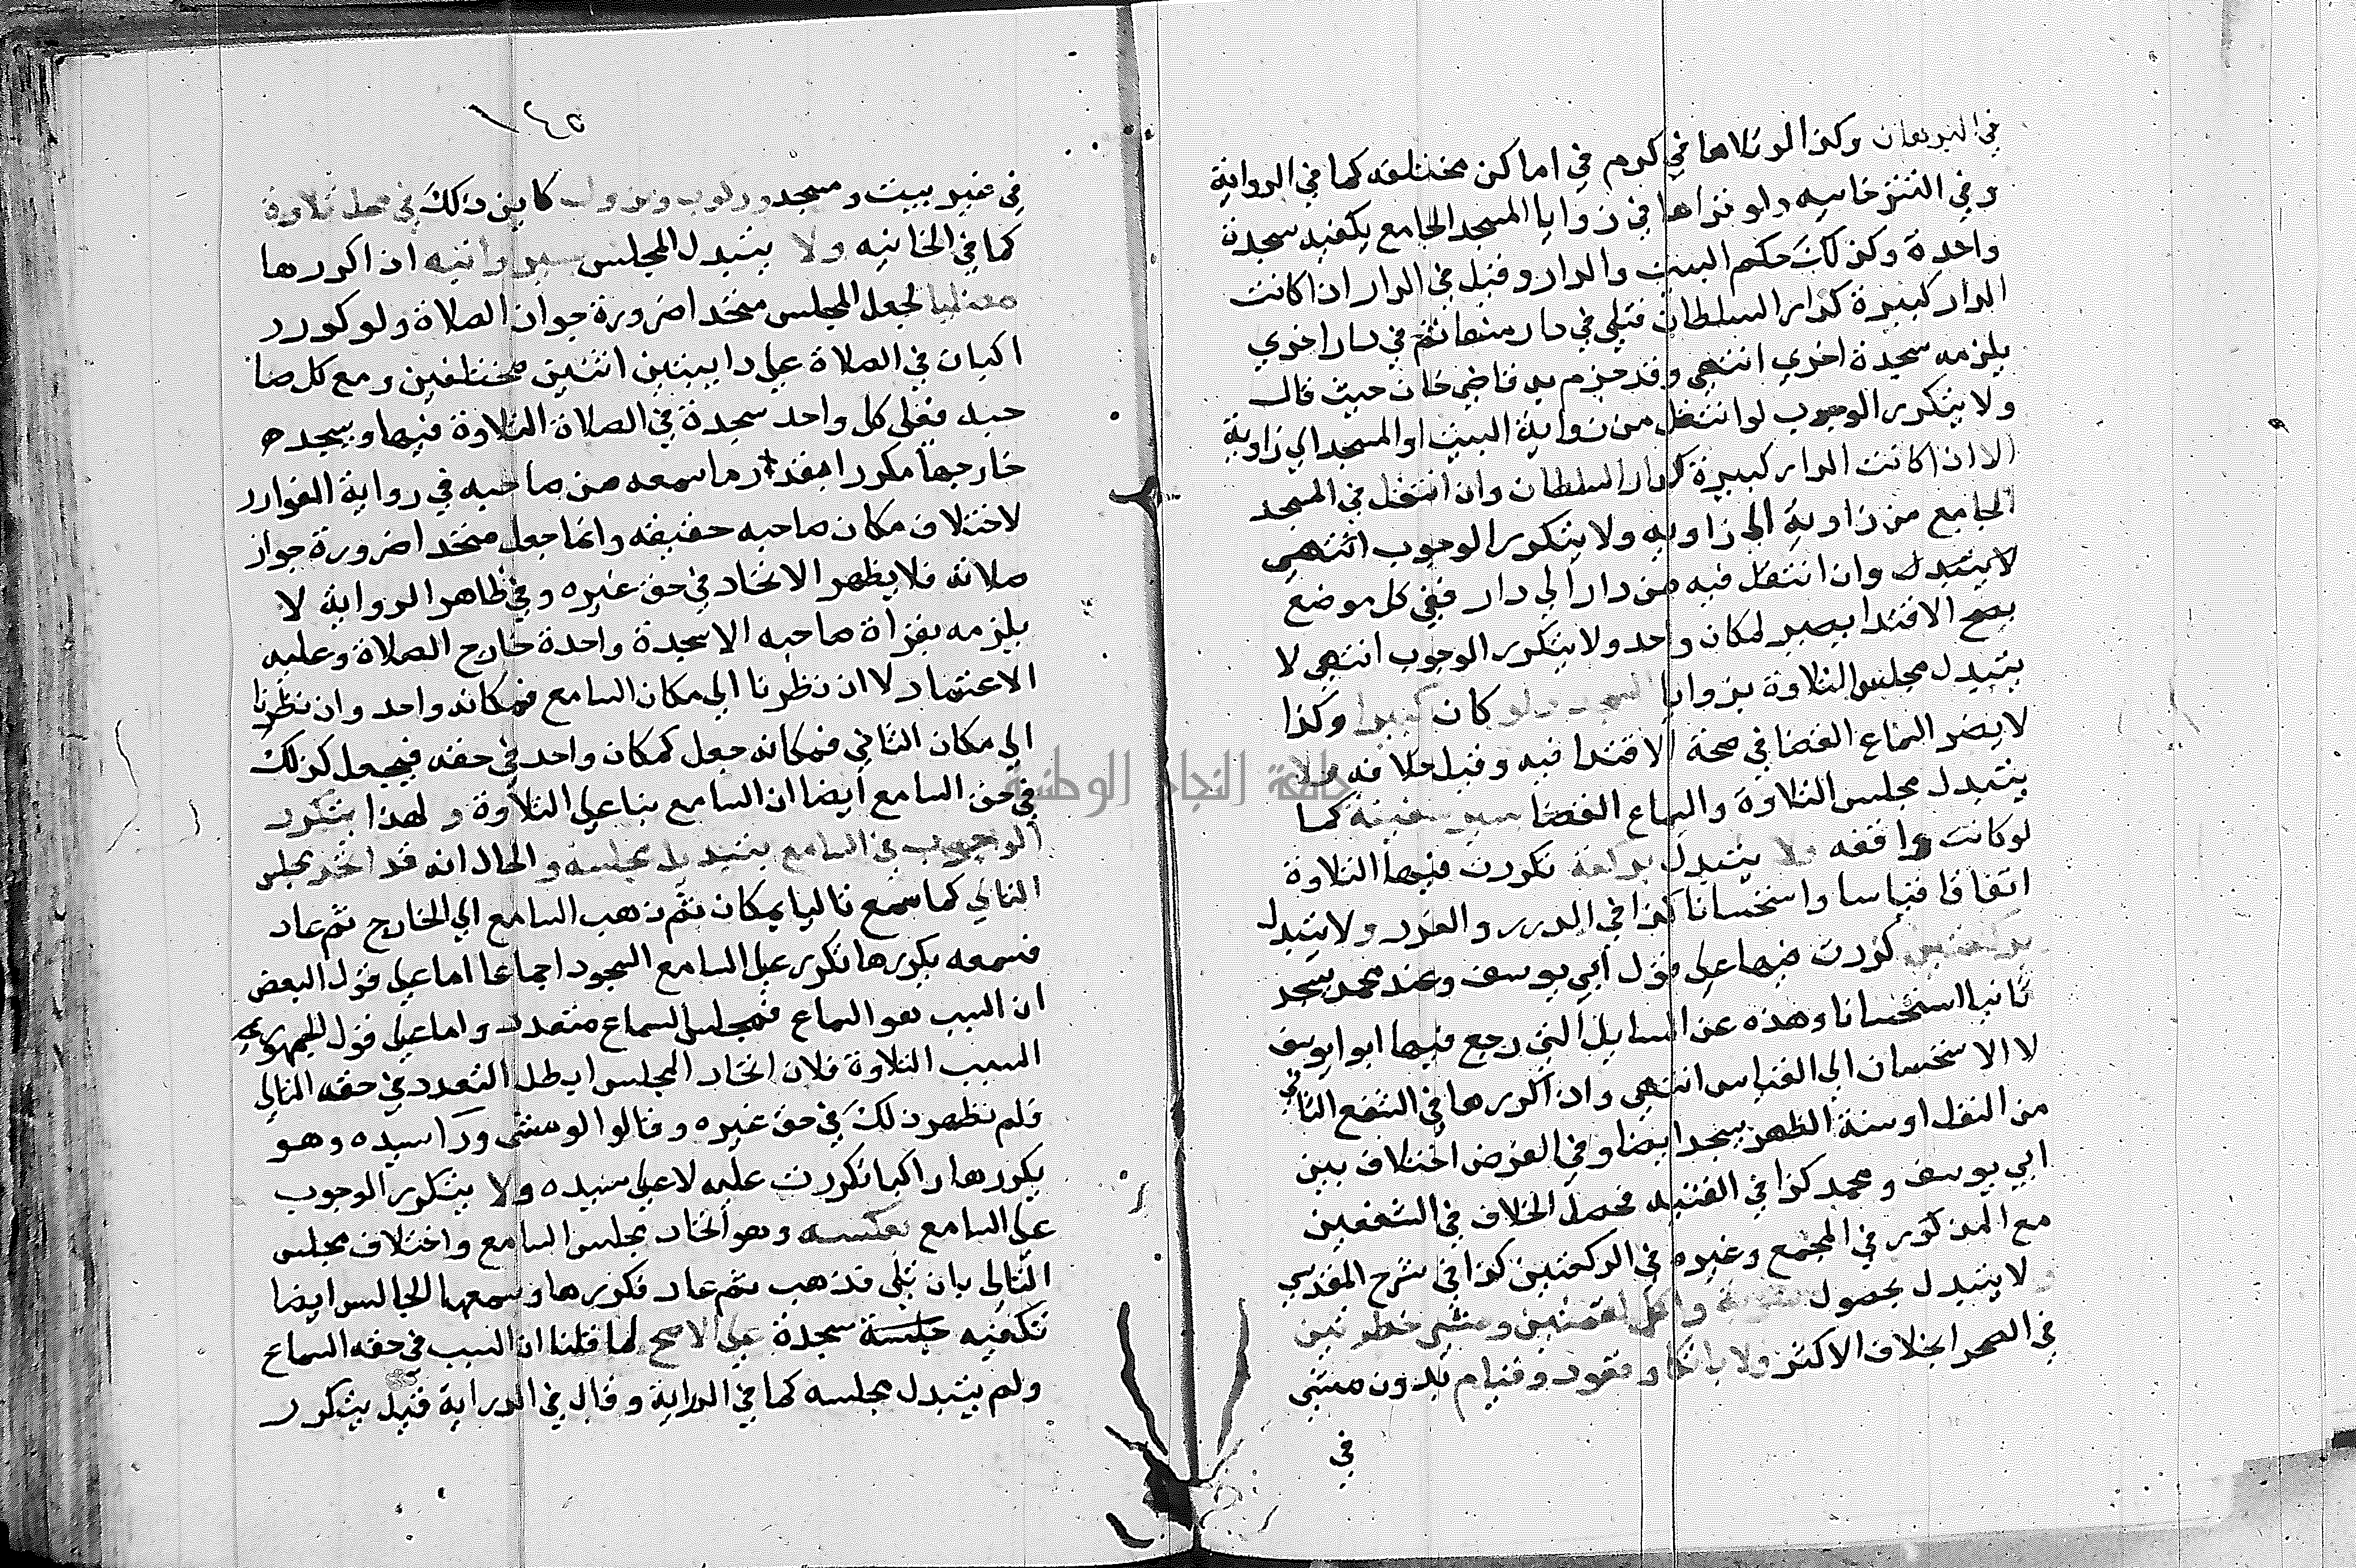 في البرهان وكذا لو تلاها في كرم في اماكن مختلفه كما في الرواية
وفي التترخانيه ولو قراها في زوايا المسجد الجامع يكفيه سجدة
واحدة وكذلك حكم البيت والدار وقيل في الدار اذا كانت
الدار كبيرة كدار السلطان فتلي في دار منها ثم في دار اخري
يلزمه سجدة اخري انتهي وقد جزم به قاضي خان حيث قال
ولا يتكرر الوجوب لو انتقل من زواية البيت او المسجد الي زاوية
الا اذا كانت الدار كبيرة كدار السلطان وان انتقل في المسجد
الجامع من زاوية الي زاويه ولا يتكرر الوجوب انتهي
لا يتبدل وان انتقل فيه من دار الي دار ففي كل موضع
يصح الاقتدا يصير لمكان واحد ولا يتكرر الوجوب انتهي لا
يتبدل مجلس التلاوة بزوايا المسجد ولو كان كبيرا وكذا
لا يضر اتساع الفضا في صحة الاقتدا فيه وقيل خلافه ولا
يتبدل مجلس التلاوة والسماع الفضا بسير سفينة كما
لو كانت واقفه ولا يتبدل بركعة تكررت فيها التلاوة
اتفاقا قياسا واستحسانا كذا في الدرر والغرر ولا يتبدل
بركعتين كررت فيها علي قول ابي يوسف وعند محمد يسجد
ثانيا استحسانا وهذه عن المسايل التي رجع فيها ابو ايوسف
لا الاستحسان الي القياس انتهي واذا كررها في الشفع الثاني
من النفل او سنة الظهر سجد ايضا وفي الفرض اختلاف بين
ابي يوسف ومحمد كذا في القنيه فحصل الخلاف في الشفعين
مع المذكور في المجمع وغيره في الركعتين كذا في شرح المقدسي
ولا يتبدل بحصول شربة واكل لقمتين ومشي خطوتين
في الصحرا بخلاف الاكثر ولا باتكا وقعود وقيام بدون مشي
في
١٤٥
في غير بيت ومسجد وركوب ونزول كاين ذلك في محل تلاوة
كما في الخانيه ولا يتبدل المجلس بسير دابته اذا كررها
مصليا لجعل المجلس متحدا ضرورة جواز الصلاة ولو كورر
اكبان في الصلاة علي دابيتين اثنين مختلفين ومع كل صا
حبه فعلي كل واحد سجدة في الصلاة التلاوة فيها وسجده
خارجها مكررا بقدر ما سمعه من صاحبه في رواية النوادر
لاختلاف مكان صاحبه حقيقه وانما جعل متحدا ضرورة جواز
صلاته فلا يظهر الاتحاد في حق غيره وفي ظاهر الرواية لا
يلزمه بقراة صاحبه الا سجدة واحدة خارج الصلاة وعليه
الاعتماد لا ان نظرنا الي مكان السامع فمكانه واحد وان نظرنا
الي مكان الثاني فمكانه جعل كمكان واحد في حقه فيجعل كذلك
في حق السامع ايضا ان السامع بنا علي التلاوة ولهذا يتكرر
الوجوب في السامع بتبديل مجلسه والحال انه قد اتحد مجلس
التالي كما سمع تاليا بمكان ثم ذهب السامع الي الخارج ثم عاد
فسمعه يكررها تكرر علي السامع السجود اجماعا اما علي قول البعض
ان السبب هو السماع فمجلس السماع متعدد واما علي قول الجمهور
السبب التلاوة فلان اتحاد المجلس ابطل التعدد في حقه التالي
فلم نظهر ذلك في حق غيره وقالوا لو مشي ورا سيده وهو
يكررها راكبا تكررت عليه لا علي سيده ولا يتكرر الوجوب
علي السامع بعكسه وهو اتحاد مجلس السامع واختلاف مجلس
التالي بان تلي فذهب ثم عاد فكررها وسمعها الجالس ايضا
تكفيه جلسة سجدة علي الاصح لما قلنا ان السبب في حقه السماع
ولم يتبدل مجلسه كما في الدراية وقال في الدراية قيل يتكرر
جامعة النجاح الوطنية